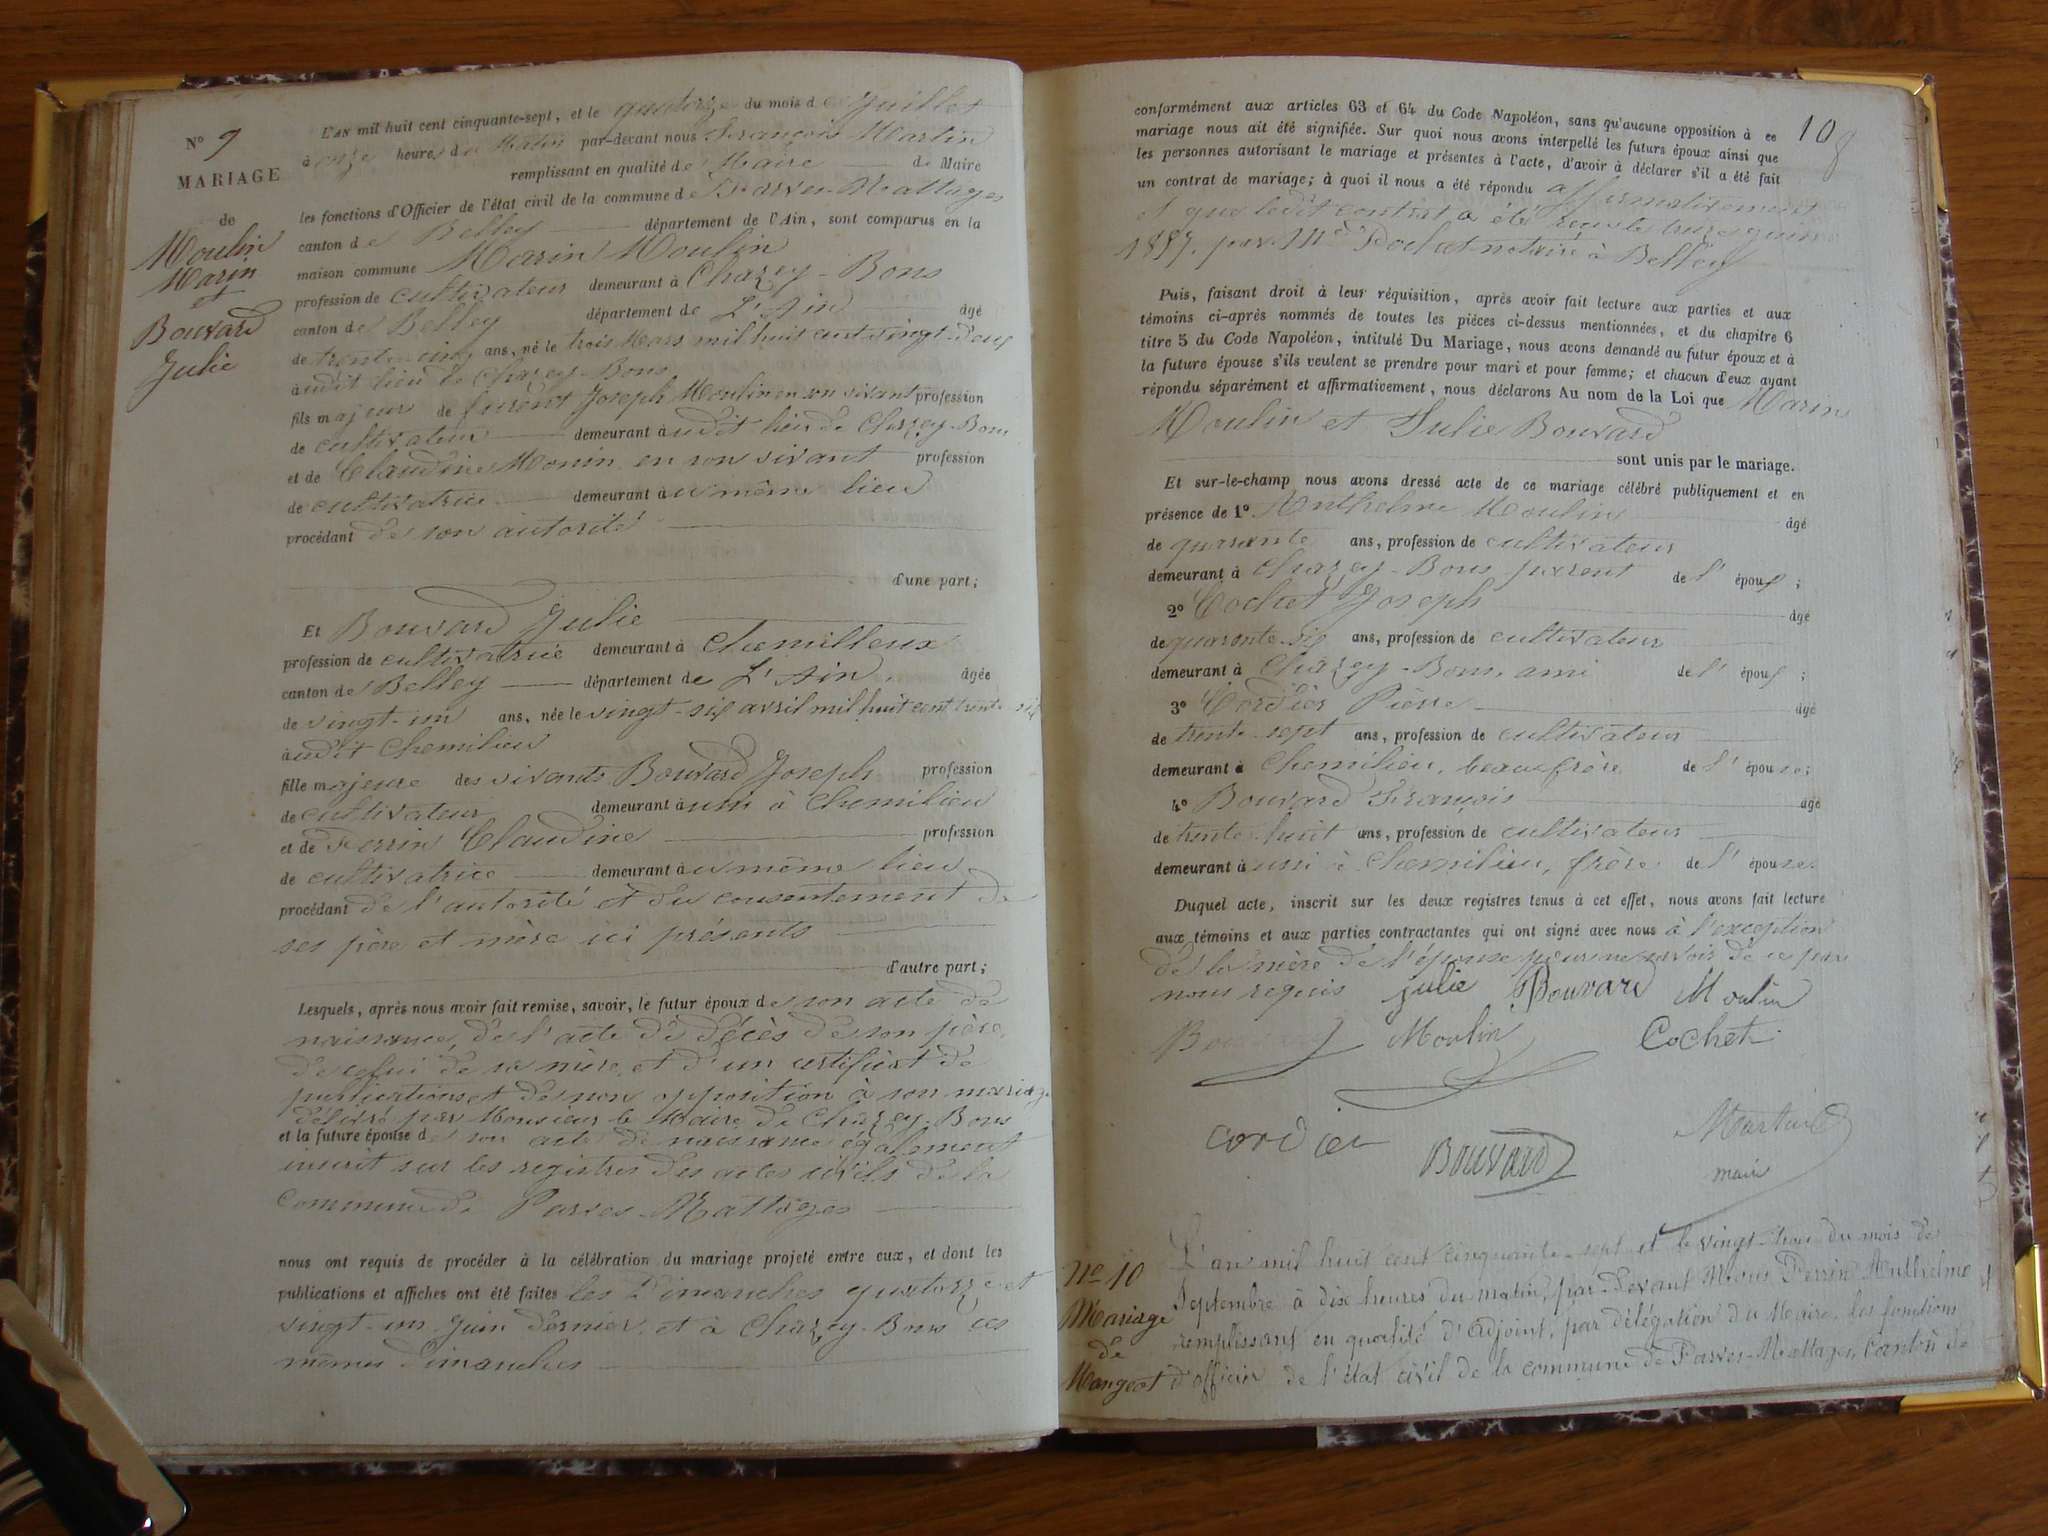 N° 9
MARIAGE
de
Moulin
Marin
et
Bouvard
Julie
L'AN mil huit cent cinquante-sept, et le quatorze du mois de Juillet
à onze heures du Matin par-devant nous François Martin
remplissant en qualité de Maire de Maire
les fonctions d'Officier de l'état civil de la commune de Parves-Nattages
canton de Belley département de l'Ain, sont comparus en la
maison commune Marin Moulin
profession de cultivateur demeurant à Chazey-Bons
canton de Belley département de L'Ain âgé
de trente-cinq ans, né le trois Mars mil huit cent vingt-deux
audit lieu de Chazey-Bons
fils majeur de Laurent Joseph Moulin en son vivant profession
de cultivateur demeurant audit lieu de Chazey-Bons
et de Claudine Monin en son vivant profession
de cultivatrice demeurant au même lieu
procédant de son autorité
d'une part;
Et Bouvard Julie
profession de cultivatrice demeurant à Chemillieux
canton de Belley département de L'Ain, âgée
de vingt-un ans, née le vingt-six avril mil huit cent trente-six
audit Chemilieu
fille majeure des vivants Bouvard Joseph profession
de cultivateur demeurant à uni à Chemilieu
et de Perrin Claudine profession
de cultivatrice demeurant au même lieu
procédant de l'autorité et du consentement de
ses père et mère ici présents
d'autre part;
Lesquels, après nous avoir fait remise, savoir, le futur époux de son acte de
naissance, de l'acte de décès de son père,
de celui de sa mère, et d'un certificat de
publications et de non opposition à son mariage
délivré par Monsieur le Maire de Chazey-Bons
et la future épouse de son acte de naissance également
inscrit sur les registres des actes civils de la
commune de Parves-Nattages
nous ont requis de procéder à la célébration du mariage projeté entre eux, et dont les
publications et affiches ont été faites les Dimanches quatorze et
vingt-un Juin dernier, et à Chazey-Bons ces
mêmes dimanches
108
conformément aux articles 63 et 64 du Code Napoléon, sans qu'aucune opposition à ce
mariage nous ait été signifiée. Sur quoi nous avons interpellé les futurs époux ainsi que
les personnes autorisant le mariage et présentes à l'acte, d'avoir à déclarer s'il a été fait
un contrat de mariage; à quoi il nous a été répondu affirmativement
et que ledit contrat a été reçu le treize juin
1857, par Me Rochet notaire à Belley
Puis, faisant droit à leur réquisition, après avoir fait lecture aux parties et aux
témoins ci-après nommés de toutes les pièces ci-dessus mentionnées, et du chapitre 6
titre 5 du Code Napoléon, intitulé Du Mariage, nous avons demandé au futur époux et à
la future épouse s'ils veulent se prendre pour mari et pour femme; et chacun d'eux ayant
répondu séparément et affirmativement, nous déclarons Au nom de la Loi que Marin
Moulin et Julie Bouvard
sont unis par le mariage.
Et sur-le-champ nous avons dressé acte de ce mariage célébré publiquement et en
présence de 1° Anthelme Moulin âgé
de quarante ans, profession de cultivateur
demeurant à Chazey-Bons parent de l'époux;
2° Cochet Joseph âgé
de quarante-six ans, profession de cultivateur
demeurant à Chazey-Bons, ami de l'époux;
3° Cordier Pierre âgé
de trente-sept ans, profession de cultivateur
demeurant à Chemilieu, beau-frère de l'épouse;
4° Bouvard François âgé
de trente-huit ans, profession de cultivateur
demeurant à uni à Chemilieu, frère de l'épouse.
Duquel acte, inscrit sur les deux registres tenus à cet effet, nous avons fait lecture
aux témoins et aux parties contractantes qui ont signé avec nous à l'exception
de la mère de l'épouse pour ne savoir de ce par
nous requis julie Bouvard Moulin
Bouvard Moulin Cochet
Cordier Bouvard Martin
maire
N° 10
Mariage
de
Mangeot
L'an mil huit cent cinquante-sept et le vingt-trois du mois de
Septembre à dix heures du matin, par-devant Nous Perrin Anthelme
remplissant en qualité d'Adjoint, par délégation du Maire, les fonctions
d'officier de l'état civil de la commune de Parves-Nattages, canton de